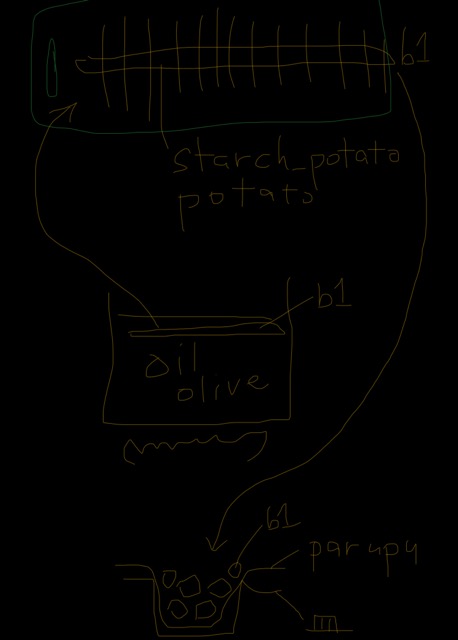 b1
starch_potato
potato
b1
oil
olive
b1
parupy